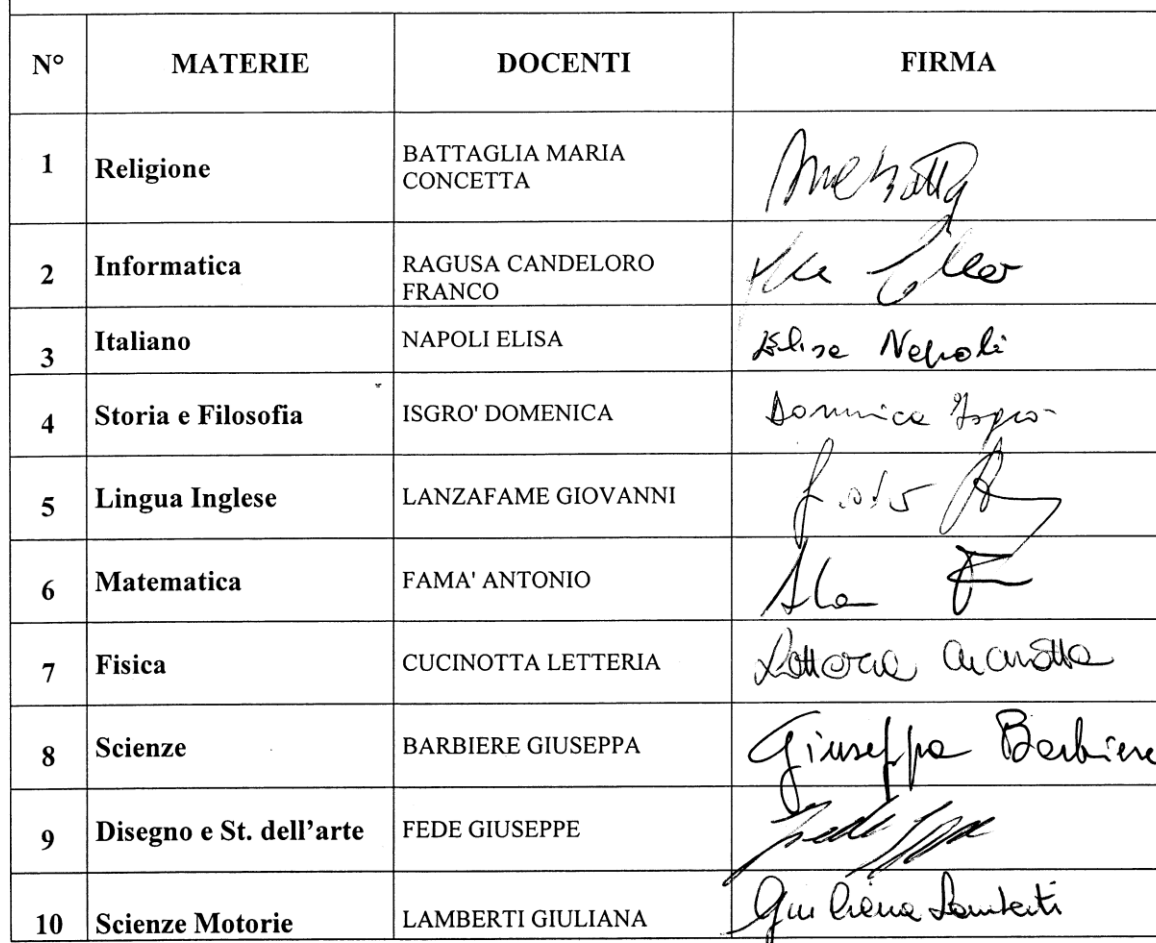 N° MATERIE DOCENTI FIRMA
1 Religione BATTAGLIA MARIA
CONCETTA
2 Informatica RAGUSA CANDELORO
FRANCO
3 Italiano NAPOLI ELISA Elisa Napoli
4 Storia e Filosofia ISGRO' DOMENICA Domenica Isgro
5 Lingua Inglese LANZAFAME GIOVANNI
6 Matematica FAMA' ANTONIO
7 Fisica CUCINOTTA LETTERIA Letteria Cucinotta
8 Scienze BARBIERE GIUSEPPA Giuseppa Barbiere
9 Disegno e St. dell'arte FEDE GIUSEPPE
10 Scienze Motorie LAMBERTI GIULIANA Giuliana Lamberti